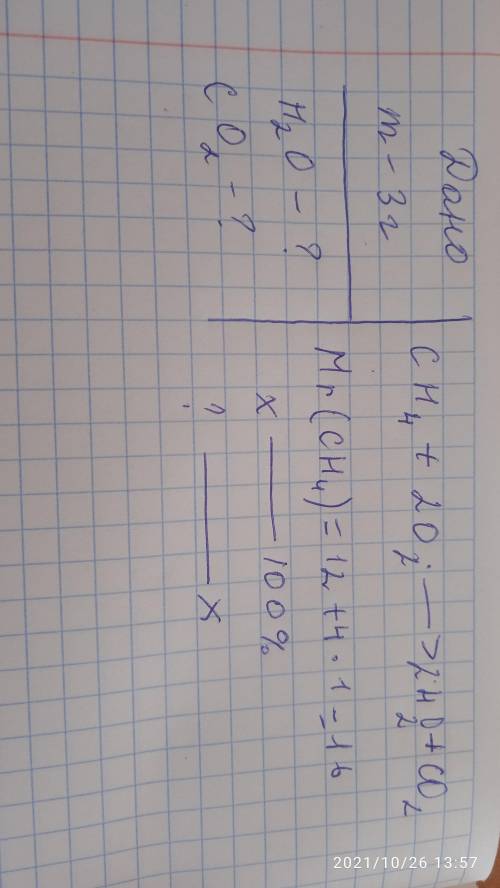 Дано
m - 3г
H₂O - ?
CO₂ - ?
CH₄ + 2O₂ —> 2H₂O + CO₂
Mr(CH₄) = 12 + 4 · 1 = 16
x —— 100%
? —— x
2021/10/26 13:57